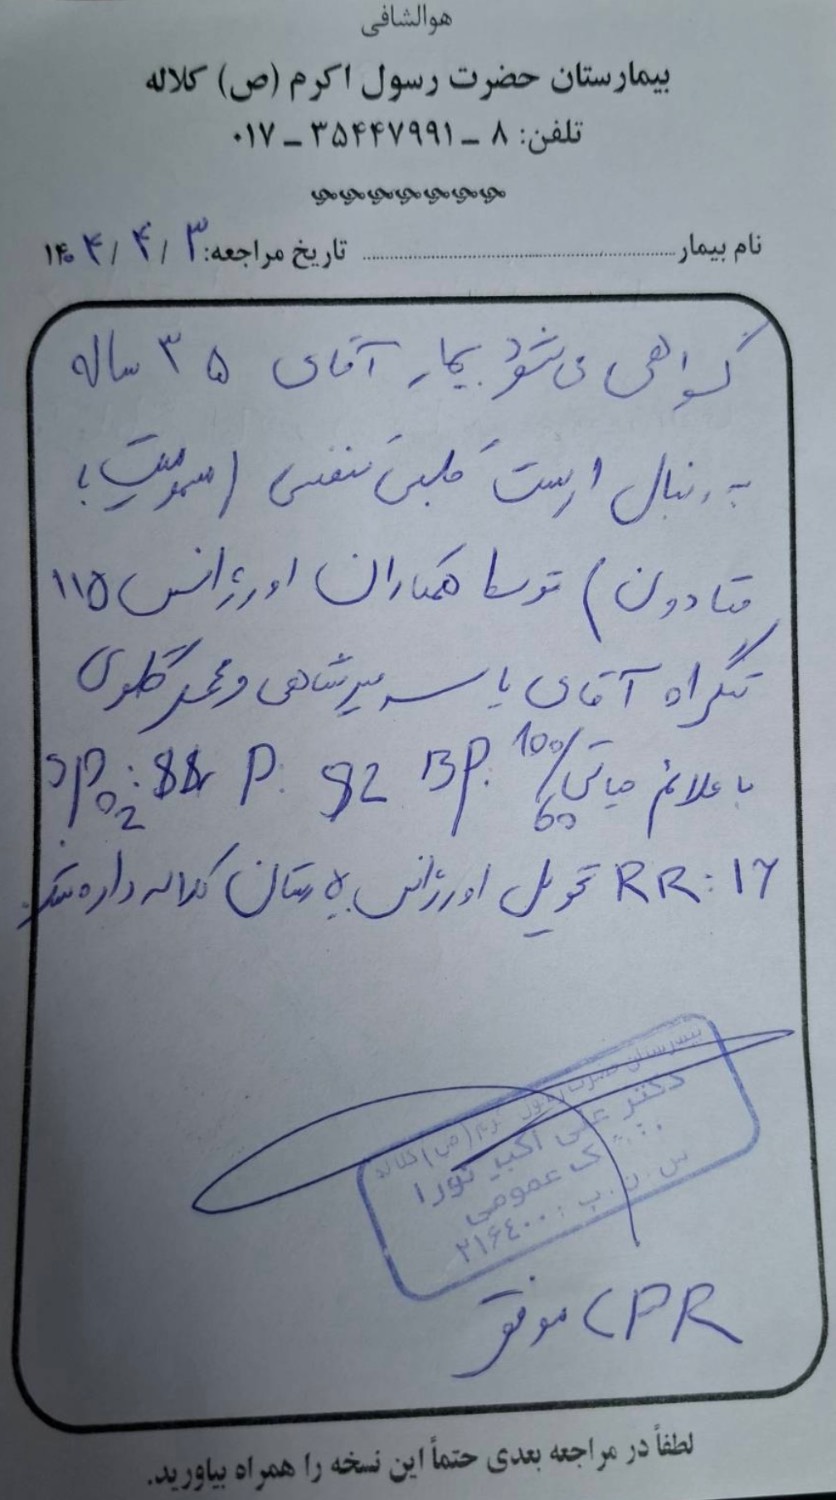 هوالشافی
بیمارستان حضرت رسول اکرم (ص) کلاله
تلفن: ۸ ــ ۳۵۴۴۷۹۹۱ ــ ۰۱۷
نام بیمار تاریخ مراجعه: ۱۴۰۴/۴/۳
گواهی می‌شود بیمار آقای ۳۵ ساله
به دنبال ارست قلبی تنفسی (مسمومیت با
متادون) توسط همکاران اورژانس ۱۱۵
تنگراه آقای یاسر میرشاهی و محمد گلوی
با علائم حیاتی BP: 100/60 P: 82 SPO2: 88%
RR: 16 تحویل اورژانس بیمارستان کلاله داده شد.
بیمارستان حضرت رسول اکرم (ص) کلاله
دکتر علی اکبر نورا
پزشک عمومی
ش.ن.پ: ۲۱۶٤۰۰
CPR موفق
لطفاً در مراجعه بعدی حتماً این نسخه را همراه بیاورید.